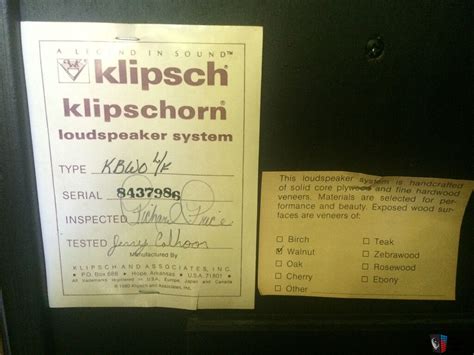 A LEGEND IN SOUND™
klipsch®
klipschorn®
loudspeaker system
TYPE KBWO L/F
SERIAL 8437986
INSPECTED
TESTED Jerry Calhoon
Manufactured By
KLIPSCH AND ASSOCIATES, INC.
P.O. BOX 688 • Hope, Arkansas • U.S.A. 71801
All trademarks registered — U.S.A., Europe, Japan and Canada
© 1980 Klipsch and Associates, Inc.
This loudspeaker system is handcrafted
of solid core plywood and fine hardwood
veneers. Materials are selected for per-
formance and beauty. Exposed wood sur-
faces are veneers of:
☐ Birch ☐ Teak
☑ Walnut ☐ Zebrawood
☐ Oak ☐ Rosewood
☐ Cherry ☐ Ebony
☐ Other